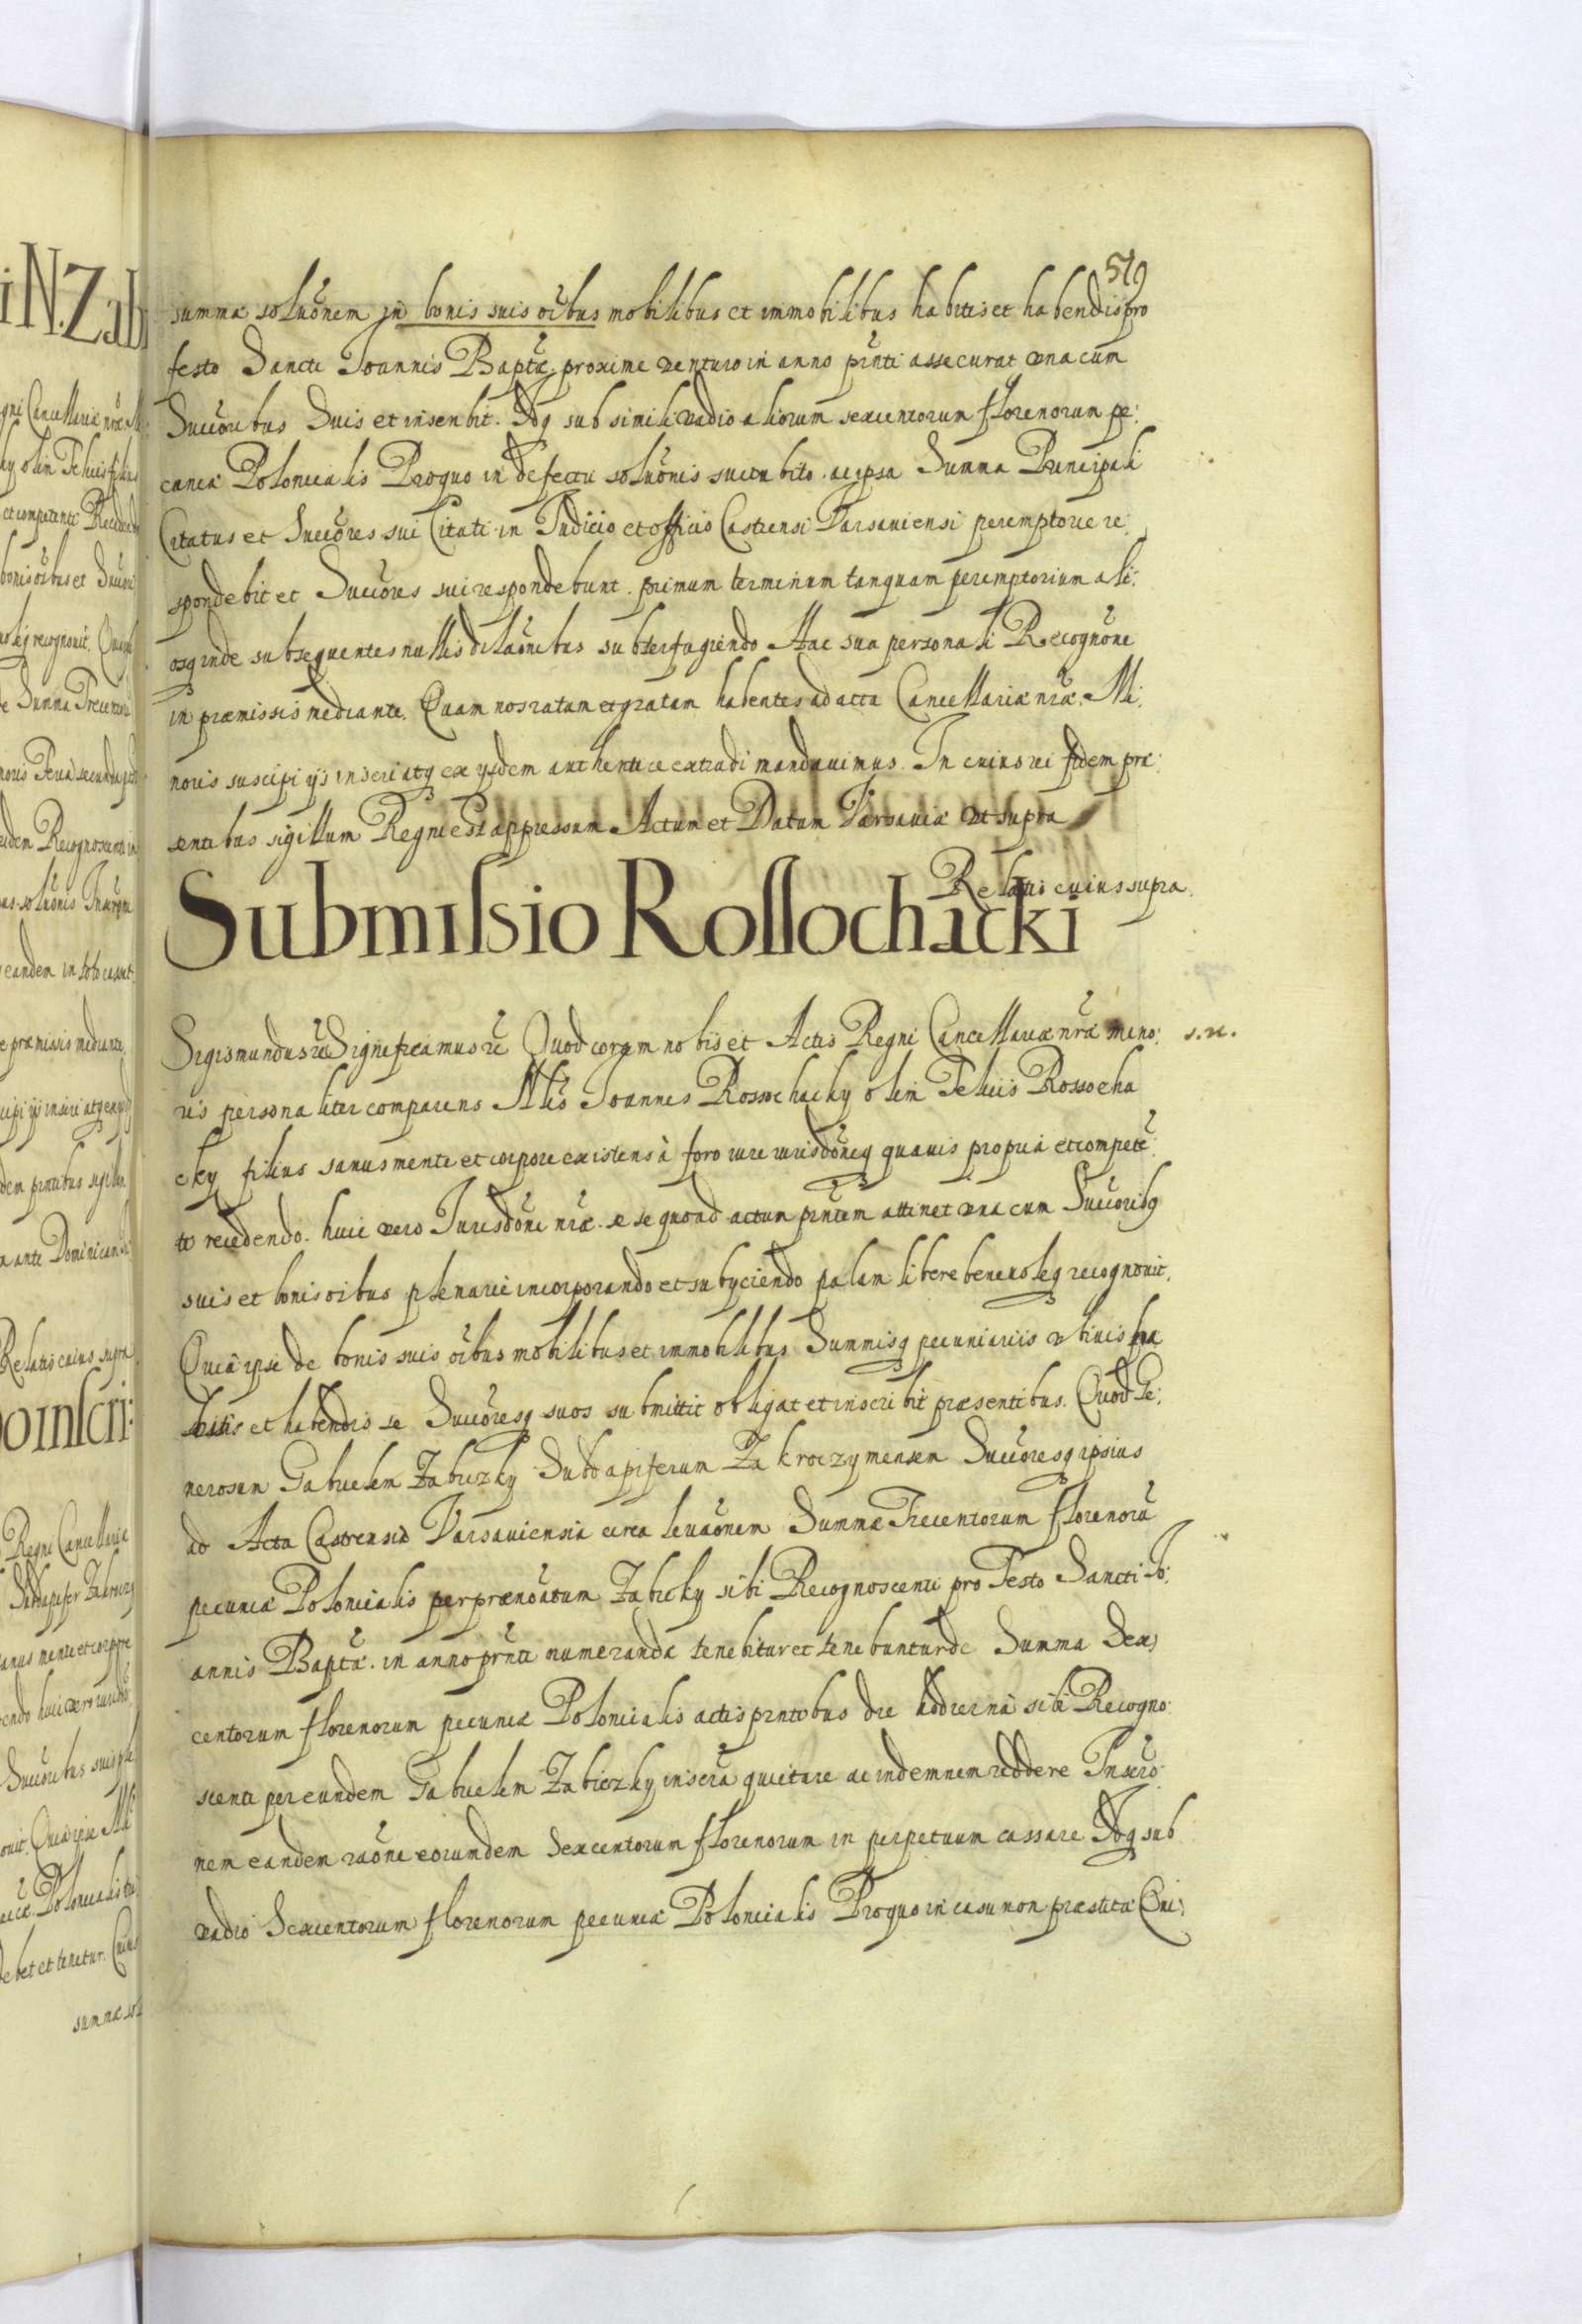 579
summæ solu͠onem in bonis suis oi͠bus mobilibus et immobilibus habitis et habendis pro
festo Sancti Joannis Bap͠tæ proxime venturo in anno pr͠nti assecurat vna cum
Succo͠ribus Suis et inscribit. Idq sub simili vadio aliorum sexcentorum florenorum pe:
cuniæ Polonicalis Pro quo in defectu solu͠onis succubito. ac ipsa Summa Principali
Citatus et Succo͠res sui Citati in Judicio et officio Castrensi Varsauiensi peremptorie re:
spondebit et Succo͠res sui respondebunt. primum terminum tanquam peremptorium ali:
osq inde subsequentes nullis dila͠onibus subterfugiendo Hac sua personali Recogno͠ne
in præmissis mediante. Quam nos ratam et gratam habentes ad acta Cancellariæ nr͠æ Mi:
noris suscipi ijs inseri atq ex ijsdem authentice extradi mandauimus. In cuius rei fidem præ:
sentibus sigillum Regni est appressum Actum et Datum Varsauiæ vt supra
Relatio cuius supra.
Submissio Rossochacki
Sigismundus r͠e Significamus r͠e Quod coram nobis et Actis Regni Cancellariæ nr͠æ mino: s.n.
ris personaliter comparens Nb͠lis Joannes Rossochacky olim Felicis Rossocha
cky filius sanus mente et corpore existens à foro iure iurisdi͠oneq quauis propria et compete͠
te recedendo. huic vero Jurisdi͠oni nr͠æ se se quoad actum pr͠ntem attinet vna cum Succo͠ribq
suis et bonis oi͠bus plenarie incorporando et subijciendo palam libere beneuoleq recognouit.
Quia ipse de bonis suis oi͠bus mobilibus et immobilibus Summisq pecuniariis vbiuis ha
bitis et habendis se Succo͠resq suos submittit obligat et inscribit præsentibus. Quod Ge:
nerosum Gabrielem Zabiczky Subdapiferum Zakroczymensem Succo͠resq ipsius
ad Acta Castrensia Varsauiensia circa leua͠onem Summæ Trecentorum florenoru͠
pecuniæ Polonicalis per prænotatum Zabicky sibi Recognoscenti pro Festo Sancti Jo:
annis Bap͠tæ in anno pr͠nti numeranda tenebitur et tenebuntur de Summa Sex:
centorum florenorum pecuniæ Polonicalis actis pr͠ntibus die hodierna sibi Recogno:
scenti per eundem Gabrielem Zabiczky inscr͠a quietare ac indemnem reddere Inscr͠o:
nem eandem ra͠one eorundem Sexcentorum florenorum in perpetuum cassare Idq sub
vadio Sexcentorum florenorum pecuniæ Polonicalis Pro quo in casu non præstitæ Qui: